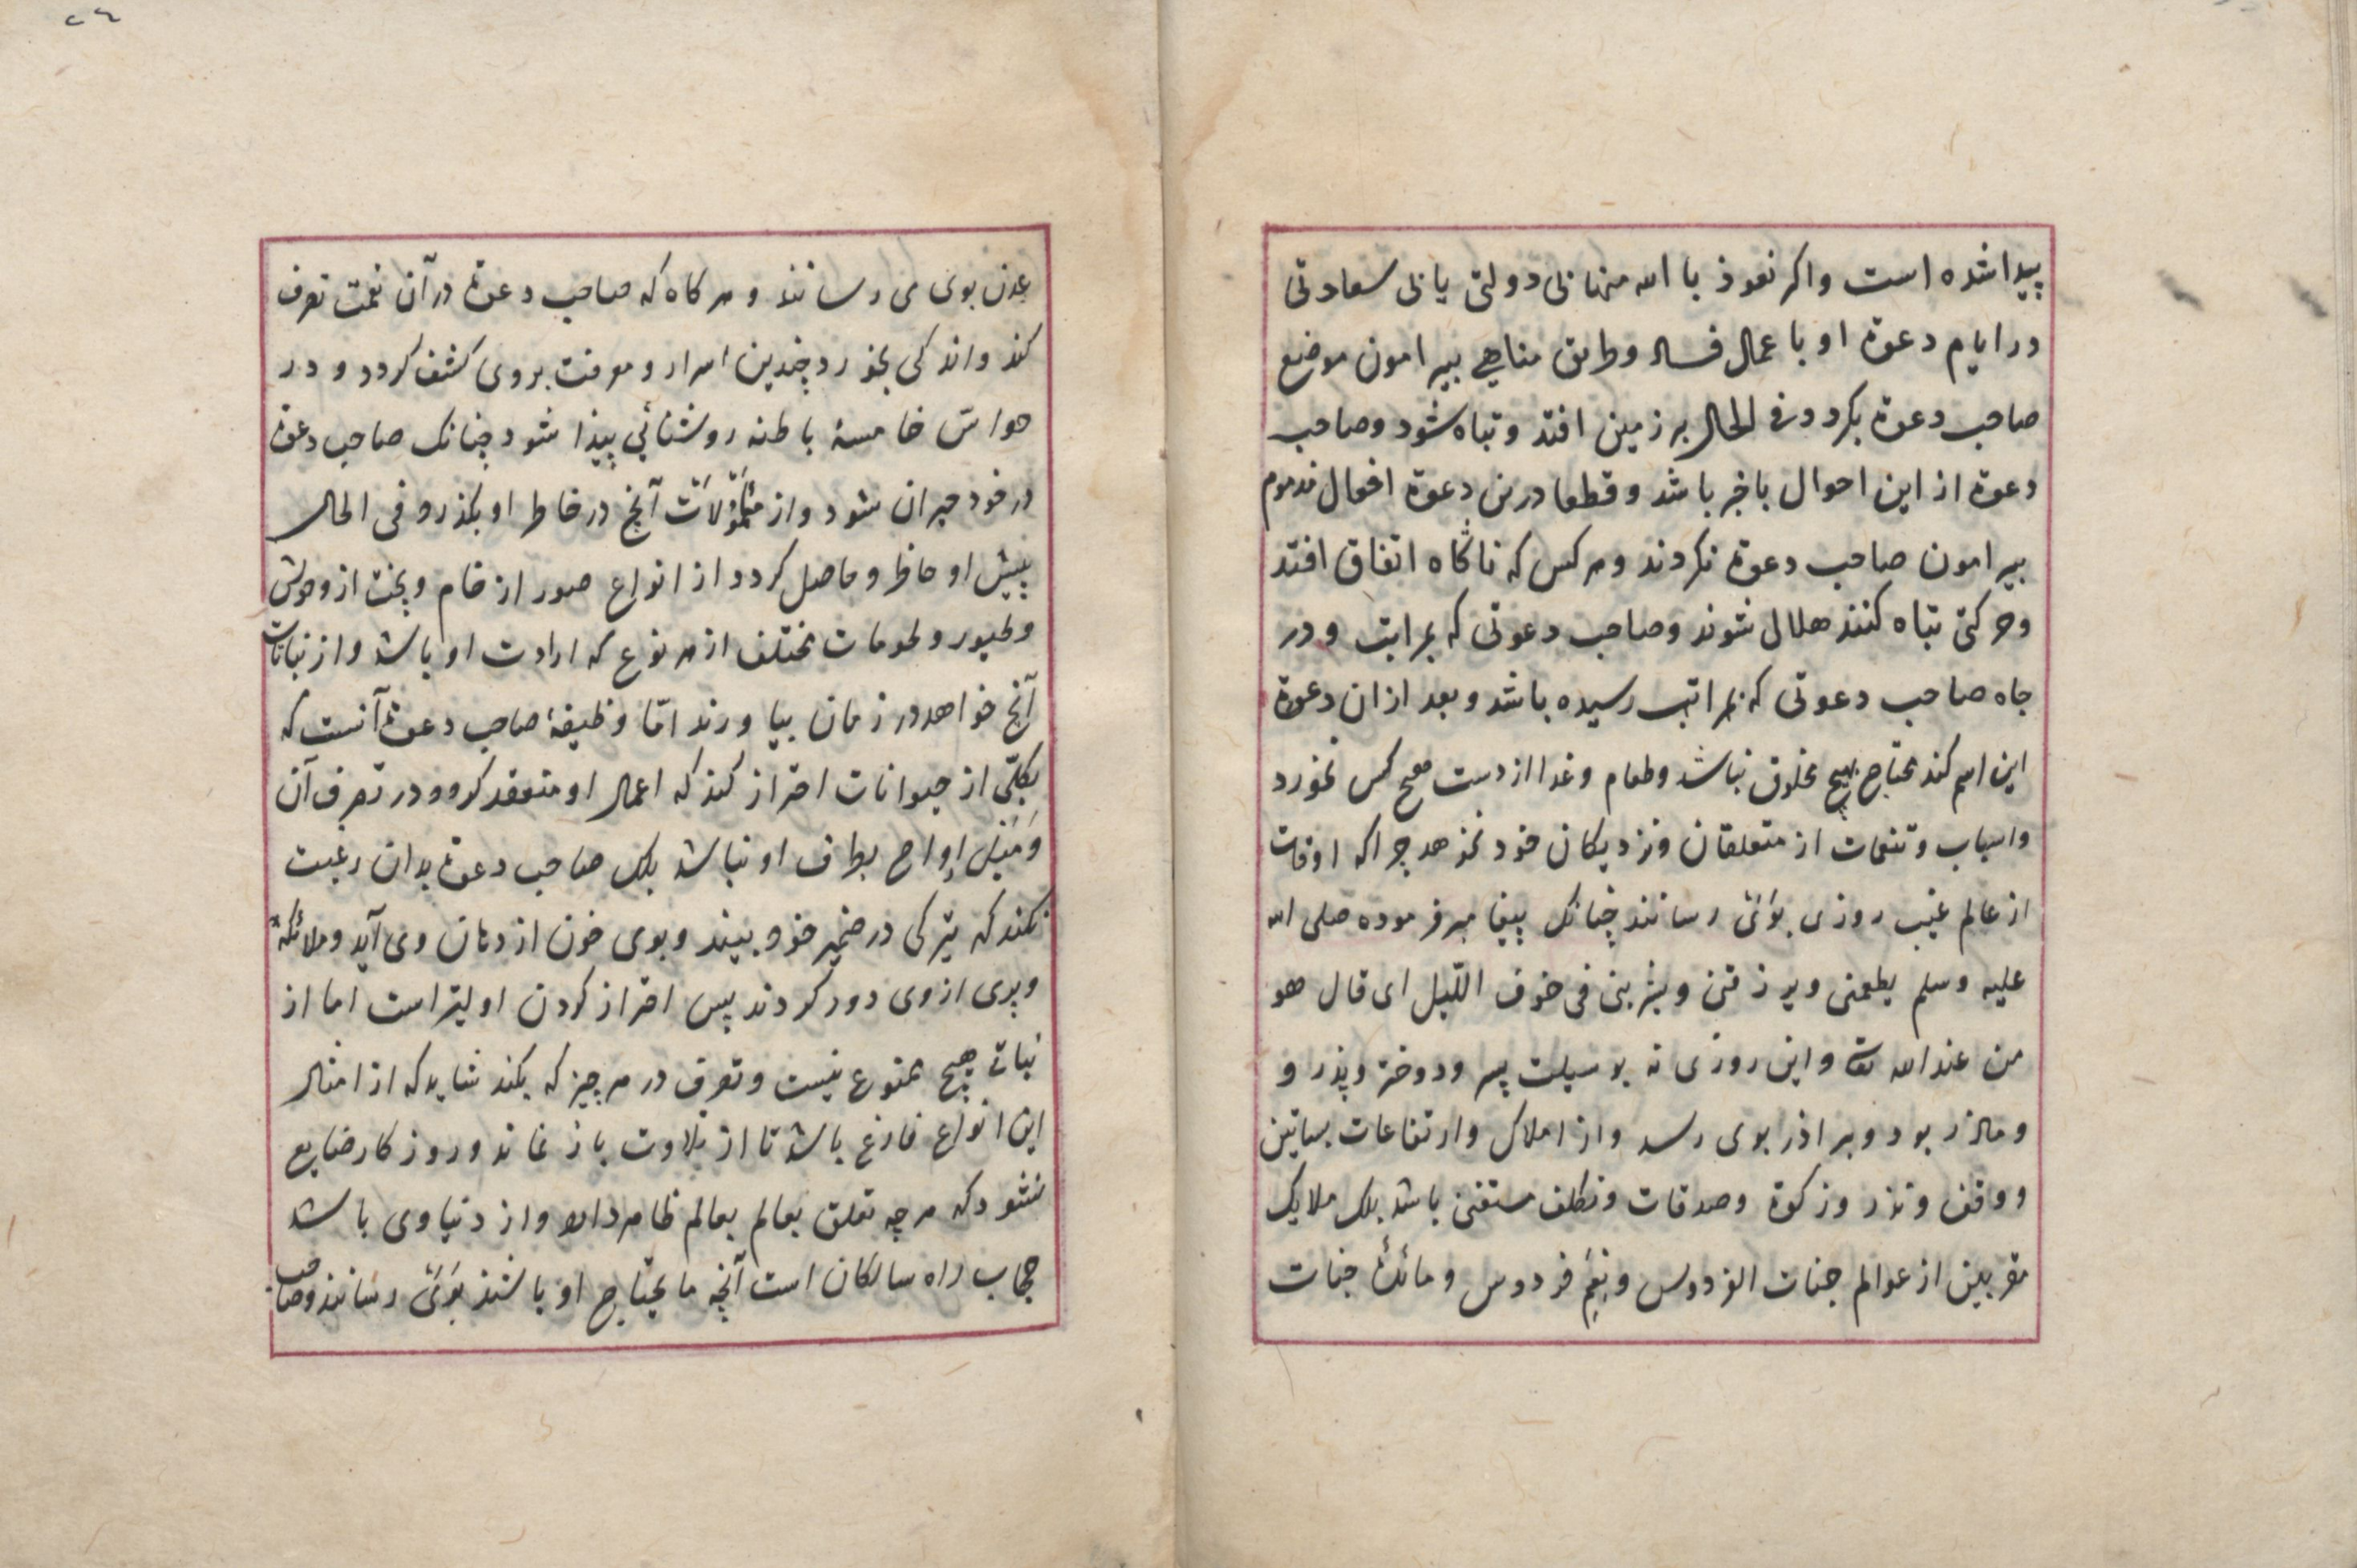 پیدا شده است واکر نعوذ با الله منها بی دولتی یا بی سعادتی
در ایام دعوة او با عمال فساد وطریق مناهی پیرامون موضع
صاحب دعوة بکردد فی الحال بر زمین افتد وتباه شود وصاحب
دعوة از این احوال باخبر باشد وقطعا درین دعوة افعال مذموم
پیرامون صاحب دعوة نکردند وهرکس که ناکاه اتفاق افتد
وحرکتی تباه کنند هلال شوند وصاحب دعوتی که بمراتب ودر
جاه صاحب دعوتی که بمراتب رسیده باشد وبعد ازان دعوة
این اسم کند محتاج بهیچ مخلوق نباشد وطعام وغدا از دست هیچ کس نخورد
واسباب وتنعمات از متعلقان ونزدیکان خود نخواهد چراکه اوقات
از عالم غیب روزی بوَیْ رسانند چنانک پیغامبر فرموده صلی الله
علیه وسلم یطعمنی ویرزقنی ویشربنی فی خوف اللّیل ای قال هو
من عند الله تعا واین روزی نه بوسیلت پسر ودوختر وپذر و
ومادر بود وبراذر بوی رسد واز املاک وارتفاعات بساتین
ووقف ونذر وزکوة وصدقات وتکلف مستغنی باشد بلک ملایک
مقربین از عوالم جنات الفردوس ونِعَمِ فردوس ومائدۀ جنات
٢٤
عدن بوی می رسانند وهرکاه که صاحب دعوة در آن نعمت تصرف
کند واندکی بخورد چندین اسرار ومعرفت بروی کشف کردد ودر
حواسّ خامسۀ باطنه روشنائی پیدا شود چنانک صاحب دعوة
در خود حیران شود واز آنج در خاطر او بکذرد فی الحال
پیش او حاظر وحاصل کردد از انواع صور از خام وپخت از وحوش
وطیور ولحومات مختلف از هر نوع که ارادت او باشد واز نباتات
آنج خواهد در زمان بیاورند امّا وظیفۀ صاحب دعوة آنست که
بکلّی از حیوانات احتراز کند که اعمال او منعقد کردد ودر تصرف آن
وَمَیْل ارواح بطرف او نباشد بلک صاحب دعوة بدان رغبت
نکند که تیرکی در ضمیر خود بیند وبوی خون از دهان وی آید وملائکه
وپری از وی دور کردند پس احتراز کردن اولیتر است اما از
نباتی هیچ ممنوع نیست وتصرف در هرچیز که بکند شاید که از امثال
این انواع فارغ باشد تا از تلاوت باز نماند وروزکار ضایع
نشود که هرچه تعلق بعالم بعالم ظاهر دارد واز دنیاوی باشد
حجاب راه سالکان است آنچه ما یحتاج او باشند بوَیْ رسانند وصاحب